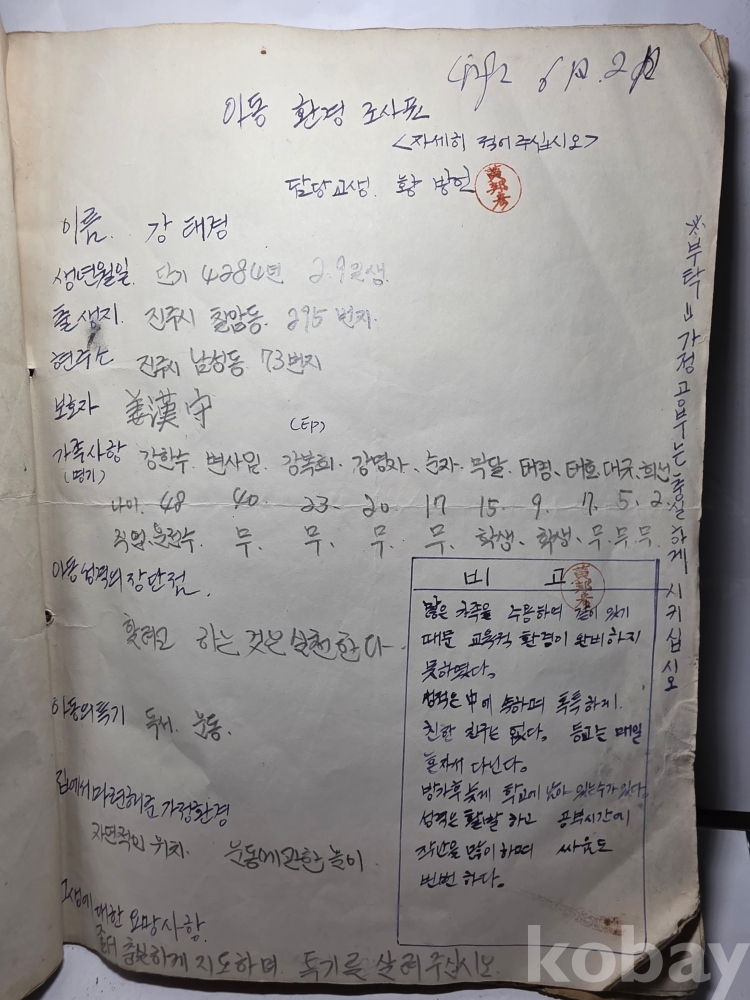 6月 2日
아동 환경 조사표
<자세히 적어주십시오>
담당교생. 황 방언
黃邦彦
이름. 강 태경
생년월일. 단기 4284년 2.9일생.
출생지. 진주시 칠암동. 295 번지.
현주소 진주시 남성동 73번지
보호자 姜漢守
가족사항 강한수. 변사임. 강복희. 강명자. 순자. 막달. 태경. 태호. 대규. 희선
(명기)
나이. 48 40 23. 20. 17 15. 9. 7. 5. 2.
직업. 운전수. 무. 무. 무. 무. 학생. 학생. 무. 무. 무.
아동성격의 장단점.
할려고 하는 것은 실천한다.
아동의특기 독서. 운동.
집에서 마련해준 가정환경
자연적인 위치. 운동에관한 놀이
교생에 대한 요망사항.
좀더 충분하게 지도하며. 특기를 살려주십시오.
비 고
黃邦彦
많은 가족을 수용하여 같이 있기
때문 교육적 환경이 완비하지
못하였다.
성적은 中에 속하며 톡톡하게.
친한 친구는 없다. 등교는 매일
혼자서 다닌다.
방과후 늦게 학교에 남아 있는수가 있다.
성격은 활발하고 공부시간에
장난을 많이하며 싸움도
번번 하다.
※부탁 = 가정공부는 충실하게 시키십시오
kobay